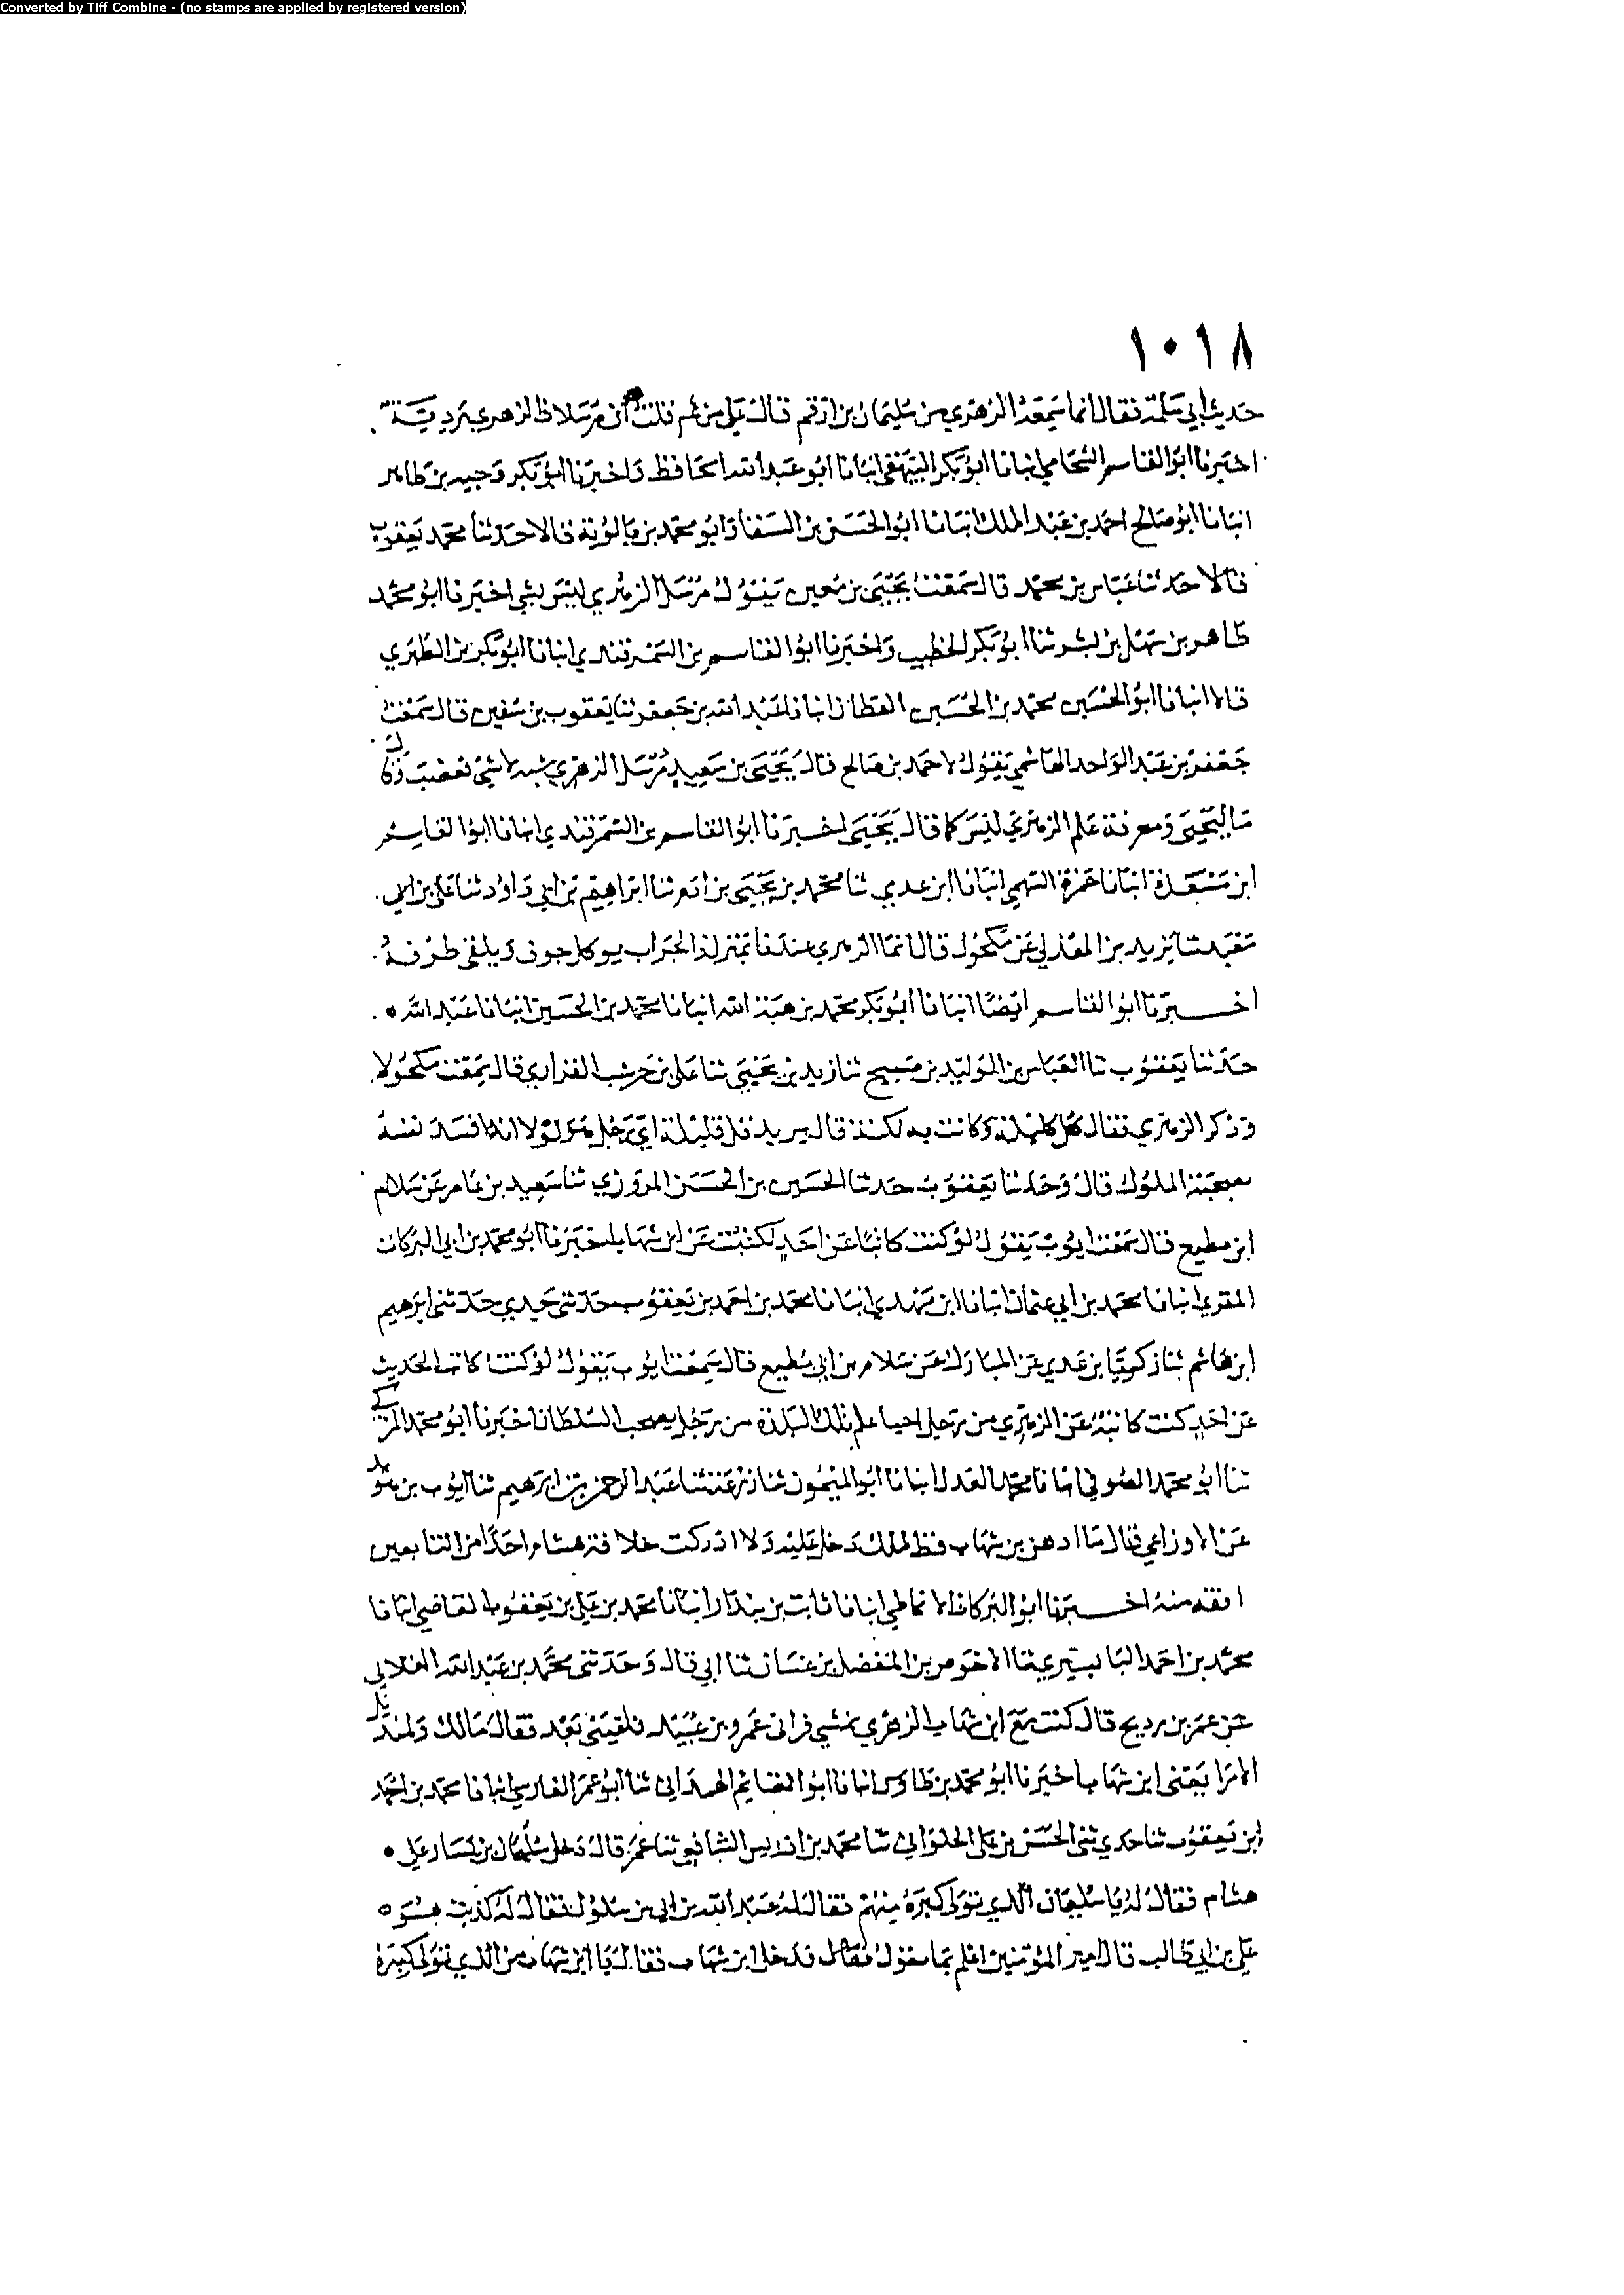 Converted by Tiff Combine - (no stamps are applied by registered version)
١٠١٨
حديث ابي سلمة فقال انما سمعه الزهري من سليمان بن ارقم قال علي من ثم قلت ان مرسلات الزهري رديـة
اخبرنا ابو القاسم الشحامي انبانا ابو بكر البيهقي انبانا ابو عبد الله الحافظ واخبرنا ابو بكر وجيه بن طاهر
انبانا ابو صالح احمد بن عبد الملك انبانا ابو الحسن بن السقا وابو محمد بن بالوية قالا حدثنا محمد يعقوب
قالا حدثنا عباس بن محمد قال سمعت يحيى بن معين يقول مرسل الزهري ليس بشي اخبرنا ابو محمد
طاهر بن سهل بن بشر ثنا ابو بكر الخطيب واخبرنا ابو القاسم بن السمرقندي انبانا ابو بكر بن الطبري
قالا انبانا ابو الحسين محمد بن الحسين القطان انبانا عبد الله بن جعفر ثنا يعقوب بن سفين قال سمعت
جعفر بن عبد الواحد الهاشمي يقول لاحمد بن صالح قال يحيى بن سعيد مرسل الزهري شبه لا شي فغضب وقال
ما ليحيى ومعرفة علم الزهري ليس كما قال يحيى اخبرنا ابو القاسم بن السمرقندي انبانا ابو القاسم
ابن مسعدة انبانا حمزة السهمي انبانا ابن عدي ثنا محمد بن يحيى بن ادم ثنا ابراهيم بن ابي داود ثنا علي بن ابي
معبد ثنا يزيد بن عن مكحول قال انما الزهري عندنا بمنزلة الجراب يوكل جوفه ويلقى طرفه
اخبرنا ابو القاسم ايضا انبانا ابو بكر محمد بن هبة الله انبانا محمد بن الحسين انبانا عبد الله
حدثنا يعقوب ثنا العباس بن الوليد بن صبح ثنا زيد بن يحيى ثنا علي بن حوشب الفزاري قال سمعت مكحولا
وذكر الزهري فقال كل كليلة وكانت به لكنة قال يريد قل قليلة اي رجل هو لولا انه افسد نفسه
بصحبته الملوك قال وحدثنا يعقوب حدثنا الحسين بن الحسن المروزي ثنا سعيد بن عامر عن سلام
ابن مطيع قال سمعت ايوب يقول لو كنت كاتبا عن احد لكتبت عن ابن شهاب اخبرنا ابو محمد بن ابي البركات
المقري انبانا محمد بن ابي عثمان انبانا ابن مهدي انبانا محمد بن احمد بن يعقوب حدثني جدي حدثني ابرهيم
ابن هاشم ثنا زكريا بن عدي عن المبارك عن سلام بن ابي مطيع قال سمعت ايوب يقول لو كنت كاتب الحديث
عن احد كنت كاتبه عن الزهري من رجل احيا علم تلك البلدة من رجل يصحب السلطان اخبرنا ابو محمد المزكي
ثنا ابو محمد الصوفي انبانا محمد العدل انبانا ابو الميمون ثنا ابو زرعة ثنا عبد الرحمن بن ابرهيم ثنا ايوب بن سويد
عن الاوزاعي قال ما ادهن بن شهاب قط لملك دخل عليه ولا ادركت خلافة هشام احدا من التابعين
افقه منه اخبرنا ابو البركات الانماطي انبانا ثابت بن بندار انبانا محمد بن علي بن يعقوب القاضي انبانا
محمد بن احمد البابسيري ثنا الاحوص بن المفضل بن غسان ثنا ابي قال وحدثني محمد بن عبد الله الغلابي
عن عمر بن رديح قال كنت مع ابن شهاب الزهري نمشي فراني عمرو بن عبيد فلقيني بعد فقال مالك ولمنديل
الامرا يعني ابن شهاب اخبرنا ابو محمد بن طاوس انبانا ابو الغنايم ثنا ابو عمر الفارسي انبانا محمد بن احمد
ابن يعقوب ثنا جدي ثني الحسن بن علي الحلواني ثنا محمد بن ادريس الشافعي ثنا عمي قال دخل سليمان بن يسار علي
هشام فقال له يا سليمان الذي تولى كبره منهم فقال له عبد الله بن ابي بن سلول فقال له كذبت هو
علي بن ابي طالب قال امير المؤمنين اعلم بما يقول فقال فدخل ابن شهاب فقال يا ابن شهاب من الذي تولى كبره